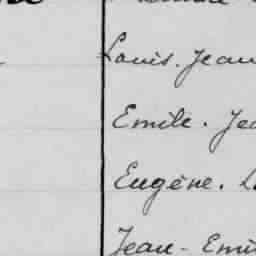 Louis. Jean
Emile. Je
Eugène.
Jean - Emi